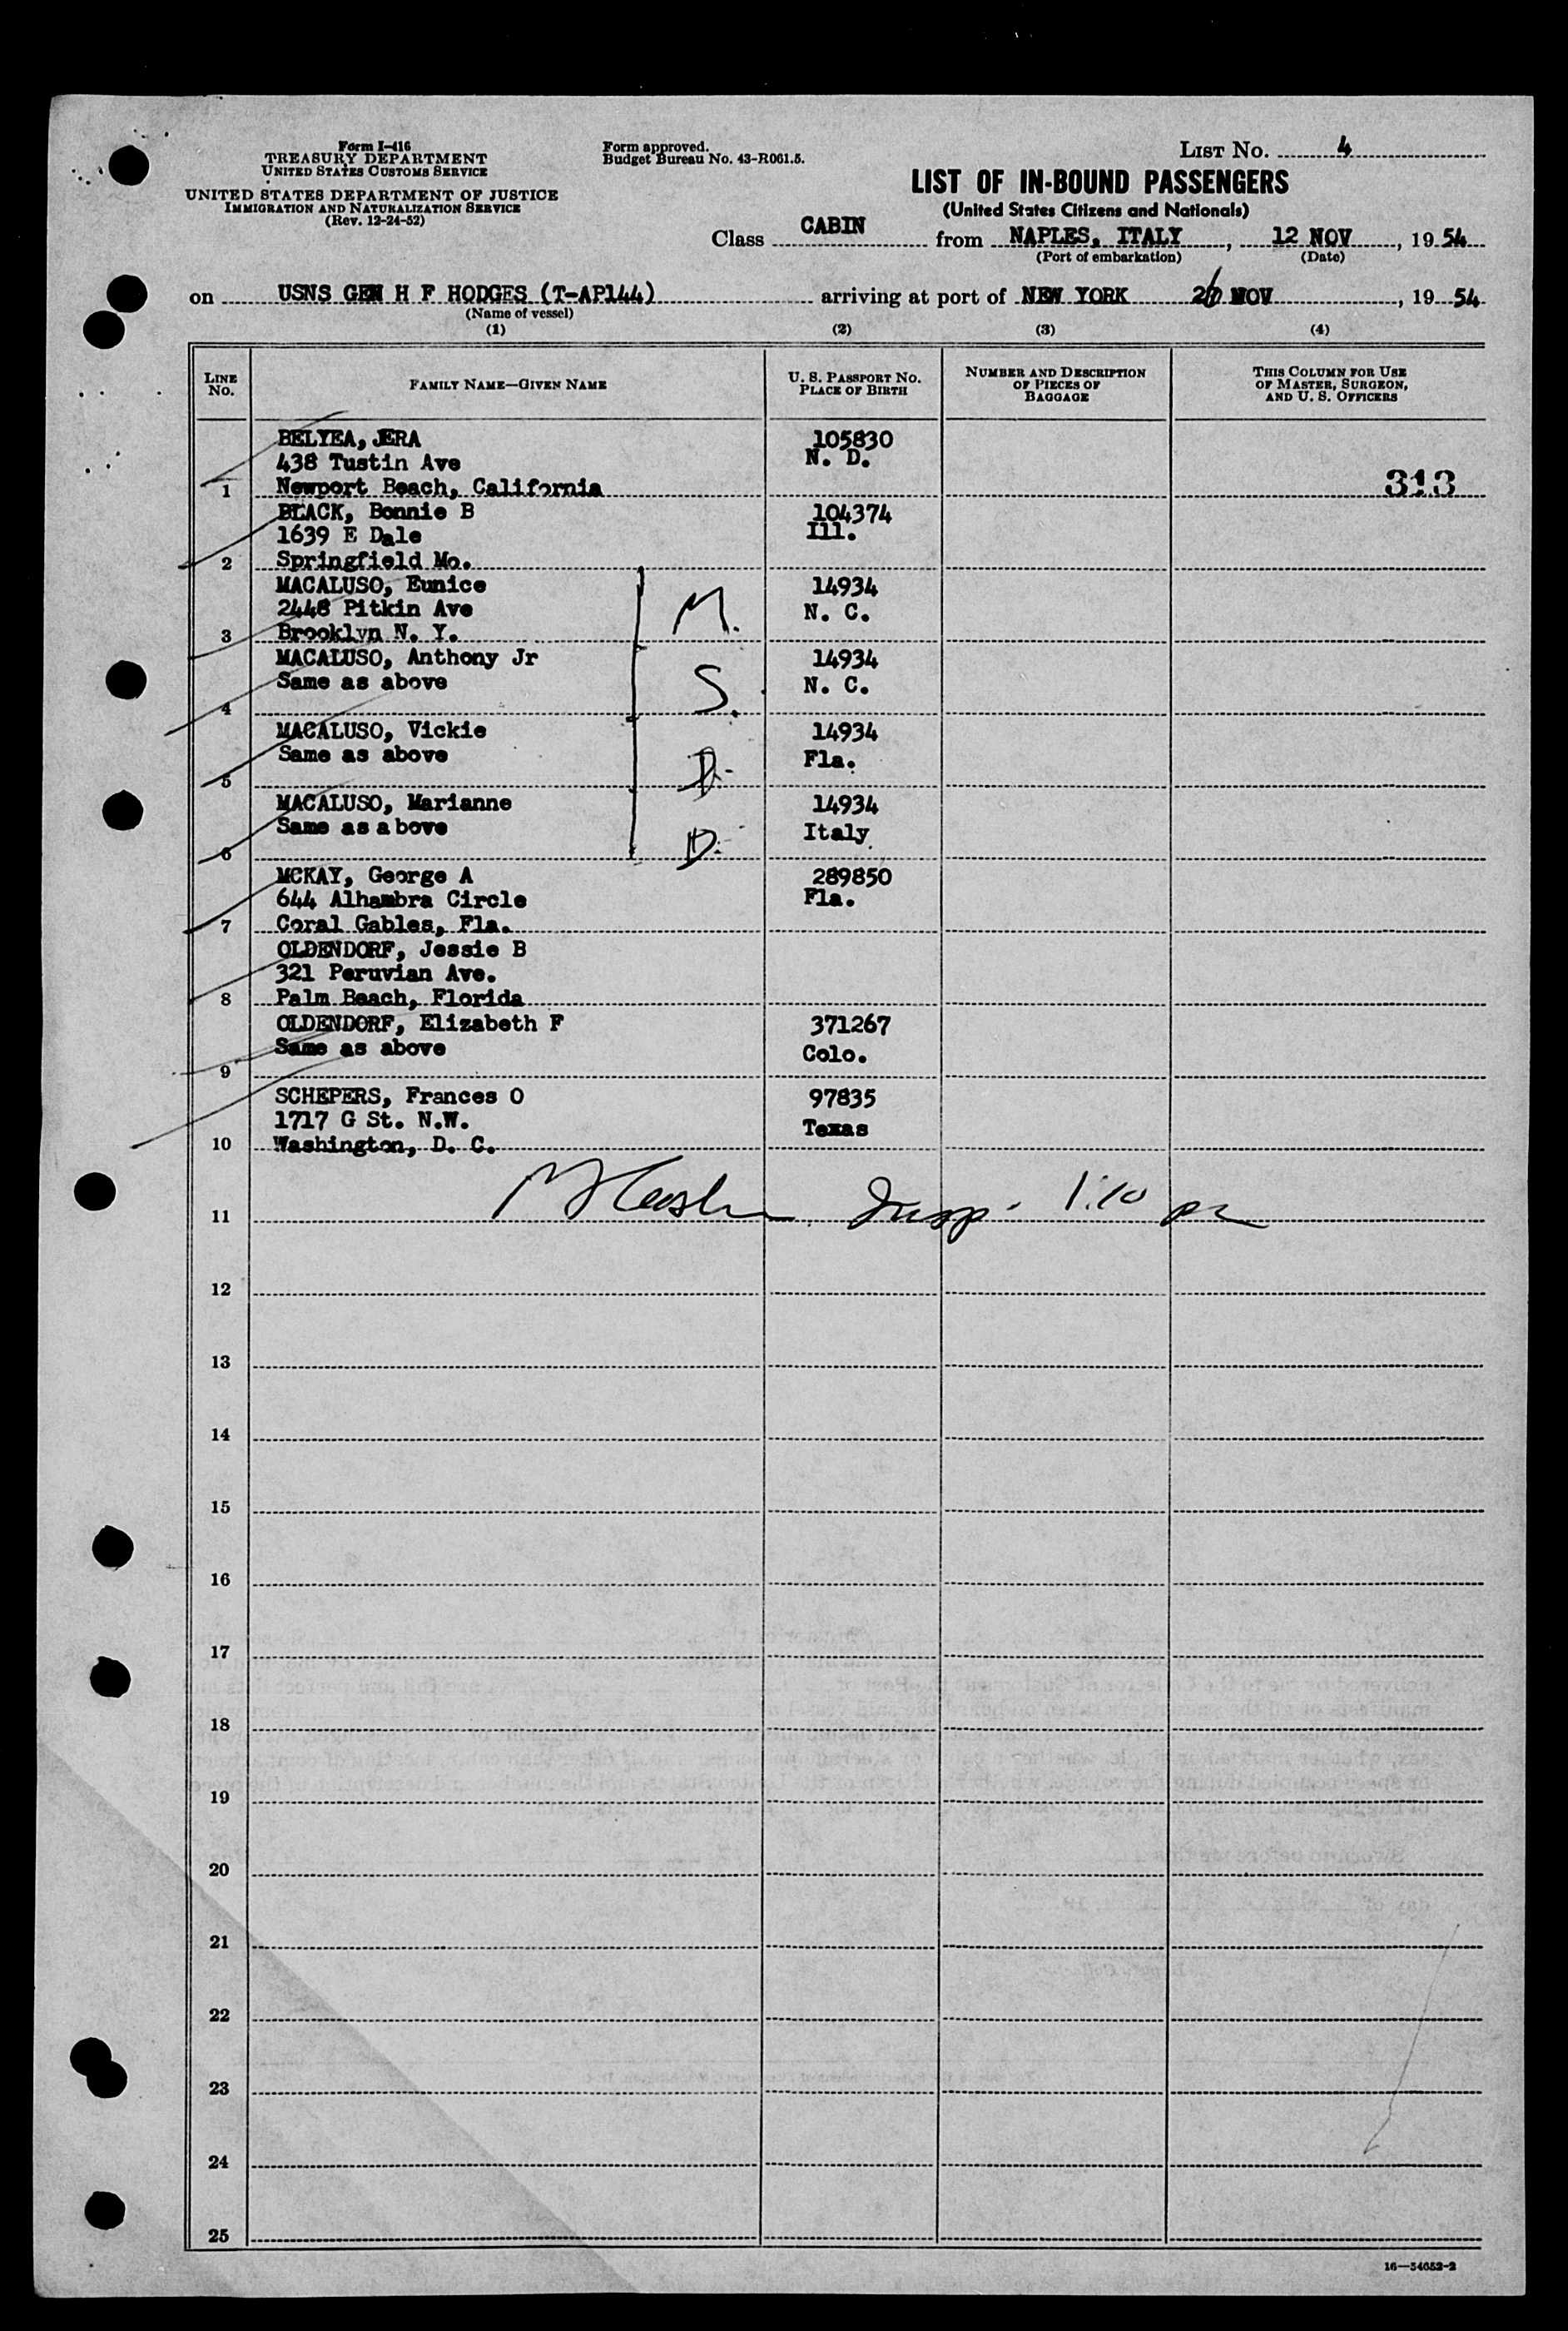 Form I-416
TREASURY DEPARTMENT
UNITED STATES CUSTOMS SERVICE
UNITED STATES DEPARTMENT OF JUSTICE
IMMIGRATION AND NATURALIZATION SERVICE
(Rev. 12-24-52)
Form approved.
Budget Bureau No. 43-R061.5.
LIST NO. 4
LIST OF IN-BOUND PASSENGERS
(United States Citizens and Nationals)
Class CABIN from NAPLES, ITALY, 12 NOV, 1954
(Port of embarkation) (Date)
on USNS GEN H F HODGES (T-AP144) arriving at port of NEW YORK NOV, 1954
(Name of vessel)
(1) (2) (3) (4)
LINE NO. FAMILY NAME—GIVEN NAME U. S. PASSPORT NO. PLACE OF BIRTH NUMBER AND DESCRIPTION OF PIECES OF BAGGAGE THIS COLUMN FOR USE OF MASTER, SURGEON, AND U. S. OFFICERS
BELYEA, JERA 105830
438 Tustin Ave N. D.
1 Newport Beach, California 313
BLACK, Bonnie B 104374
1639 E Dale Ill.
2 Springfield Mo.
MACALUSO, Eunice 14934
2448 Pitkin Ave M. N. C.
3 Brooklyn N. Y.
MACALUSO, Anthony Jr 14934
Same as above S. N. C.
4
MACALUSO, Vickie 14934
Same as above D. Fla.
5
MACALUSO, Marianne 14934
Same as above D. Italy
6
MCKAY, George A 289850
644 Alhambra Circle Fla.
7 Coral Gables, Fla.
OLDENDORF, Jessie B
321 Peruvian Ave.
8 Palm Beach, Florida
OLDENDORF, Elizabeth F 371267
Same as above Colo.
9
SCHEPERS, Frances O 97835
1717 G St. N.W. Texas
10 Washington, D. C.
11 Insp. 1:10 pm
12
13
14
15
16
17
18
19
20
21
22
23
24
25
16—54652-2